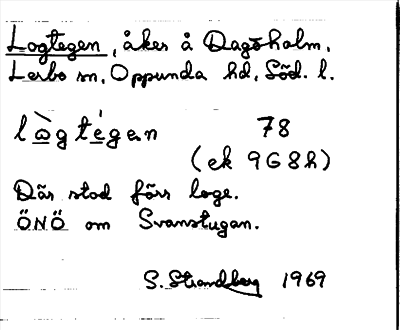 Logtegen, åker å Dagöholm,
Lerbo sn, Oppunda hd, Söd. l.
lògtégan 78
(ek 9G8h)
Där stod förr loge.
ÖNÖ om Svanstugan.
S. Strandberg 1969